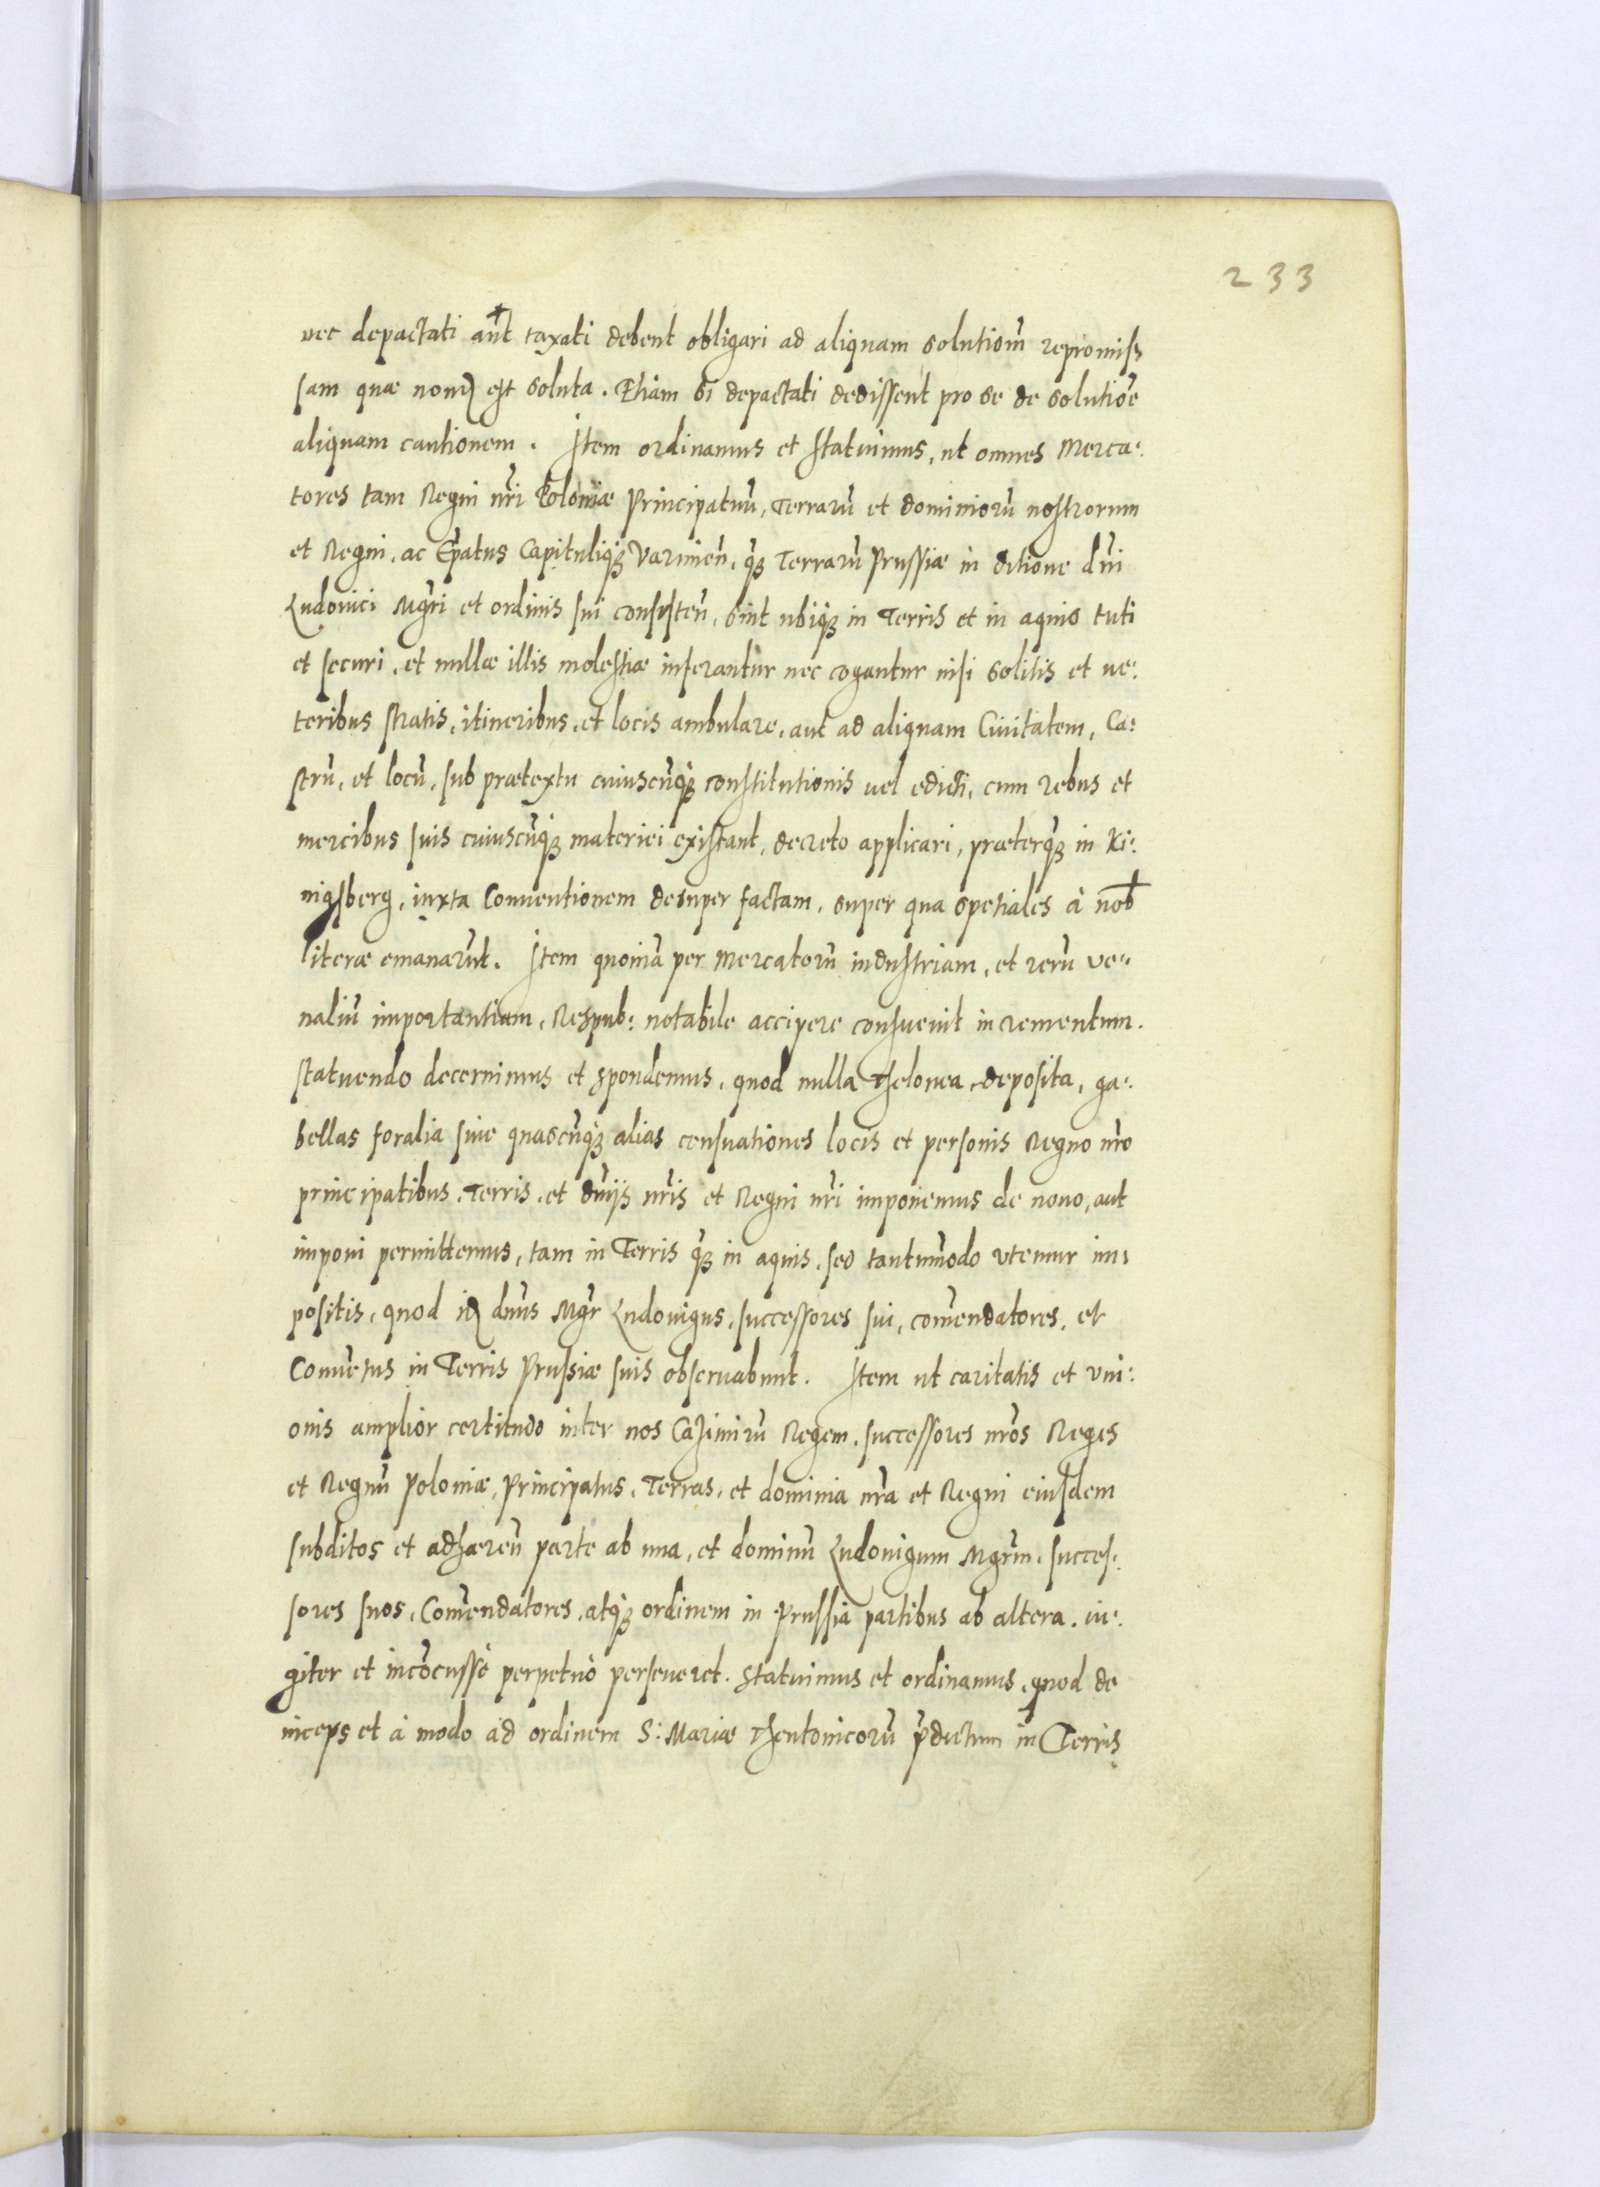 233
nec depactati aut taxati debent obligari ad aliquam solutionẽ repromis,
sam quæ nondũ est soluta. Etiam si depactati dedissent pro se de solutiõe
aliquam cautionem. Item ordinamus et statuimus, ut omnes Merca:
tores tam Regni nr̃i Poloniæ Principatuũ, Terrarũ et dominiorũ nostrorum
et Regni, ac Ep̃atus Capituliq3 Varmieñ, q̃3 Terrarũ Prussiæ in ditione dñi
Ludovici Mgr̃i et ordinis sui consisteñ, sint ubiq3 in Terris et in aquis tuti
et securi, et nullæ illis molestiæ inferantur nec cogantur nisi solitis et ve:
teribus stratis, itineribus, et locis ambulare, aut ad aliquam Civitatem, Ca:
strũ, et locũ, sub prætextu cuiuscũq3 constitutionis vel edicti, cum rebus et
mercibus suis cuiuscũq3 materiei existant, decreto applicari, præterq̃3 in Ki:
nigsberg, iuxta Conventionem desuper factam, super qua spetiales à nob
literæ emanarũt. Item quoniã per Mercatorũ industriam, et rerũ ve:
naliũ importantiam, Respub: notabile accipere consuevit incrementum.
statuendo decernimus et spondemus, quod nulla Thelonea, deposita, ga:
bellas foralia sive quascũq3 alias censuationes locis et personis Regno nr̃o
principatibus, Terris, et dñijs nr̃is et Regni nr̃i imponemus de novo, aut
imponi permittemus, tam in Terris q̃3 in aquis, sed tantum̃odo utemur im
positis, quod id dñus Mgr̃ Ludovigus, successores sui, com̃endatores, et
Conuẽtus in Terris Prussiæ suis observabunt. Item ut caritatis et uni:
onis amplior certitudo inter nos Cazimirũ Regem, successores nr̃os Reges
et Regnũ Poloniæ, Principatus, Terras, et dominia nr̃a et Regni eiusdem
subditos et adhæreñ parte ab una, et dominũ Ludovigum Mgr̃m, succes:
sores suos, Com̃endatores, atq3 ordinem in Prussia partibus ab altera, iu:
giter et incõcussè perpetuò perseveret. Statuimus et ordinamus, quod de
inceps et à modo ad ordinem S: Mariæ Theutonicorũ p̃dictum in Terris